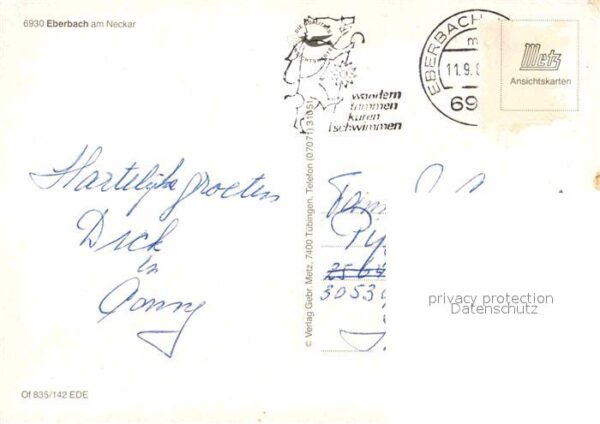 6930 Eberbach am Neckar
EBERBACH
11.9.
69
wandern
trimmen
kuren
schwimmen
Metz
Ansichtskarten
Hartelijke groeten
Dick
en
© Verlag Gebr. Metz, 7400 Tübingen, Telefon (07071) 31051
Fam
3053
privacy protection
Datenschutz
Of 835/142 EDE